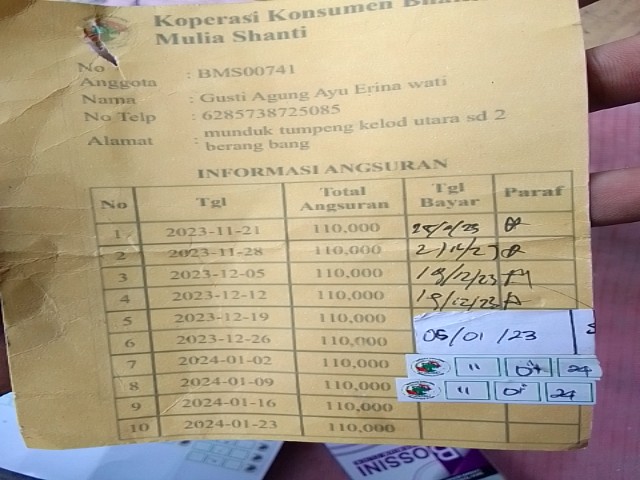 Koperasi Konsumen
Mulia Shanti
No Anggota : BMS00741
Nama : Gusti Agung Ayu Erina wati
No Telp : 6285738725085
Alamat : munduk tumpeng kelod utara sd 2
berang bang
INFORMASI ANGSURAN
No Tgl Total Angsuran Tgl Bayar Paraf
1 2023-11-21 110,000
2 2023-11-28 110,000
3 2023-12-05 110,000 19/12/23
4 2023-12-12 110,000 19/12/23
5 2023-12-19 110,000
6 2023-12-26 110,000 05/01/23
7 2024-01-02 110,000 11 01 24
8 2024-01-09 110,000 11 01 24
9 2024-01-16 110,000
10 2024-01-23 110,000
OSSINI